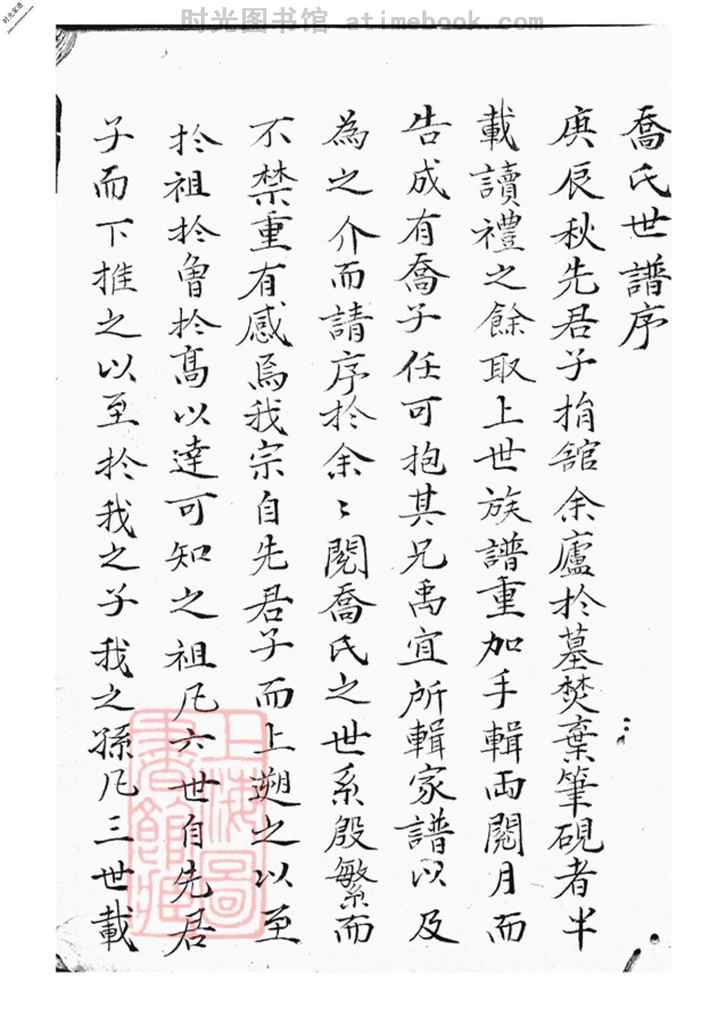 时光图书馆 atimebook.com
喬氏世譜序
庚辰秋先君子捐舘余廬於墓焚棄筆硯者半
載讀禮之餘取上世族譜重加手輯兩閱月而
告成有喬子任可抱其兄禹宜所輯家譜以及
為之介而請序於余〻閱喬氏之世系殷繁而
不禁重有感焉我宗自先君子而上遡之以至
於祖於魯於高以達可知之祖凡六世自先君
子而下推之以至於我之子我之孫凡三世載
上海圖書館藏